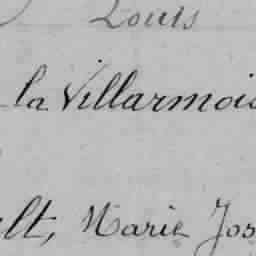 Louis
la Villarmois
elt, Marie Jos